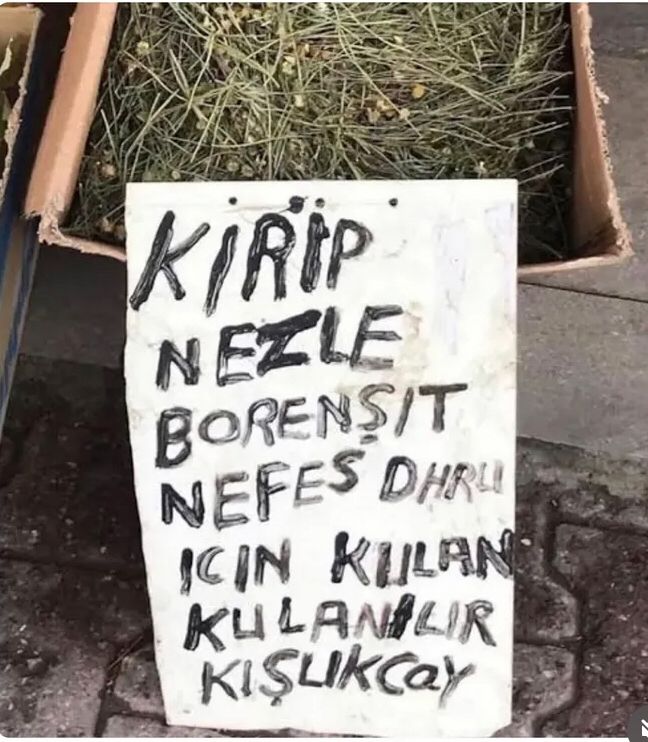 KIRİP
NEZLE
BORENŞIT
NEFES DHRU
ICIN KULAN
KULANILIR
KIŞLIKCaY